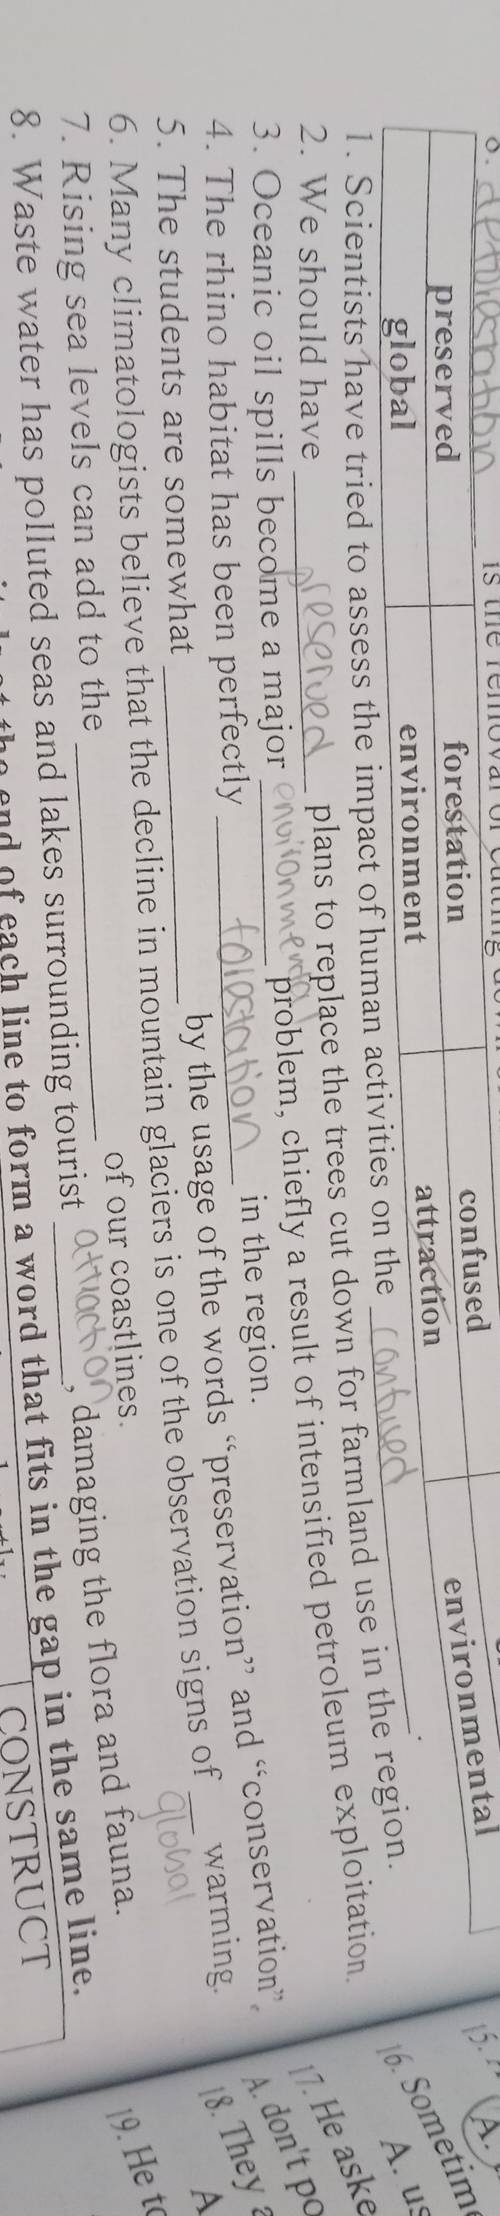 8. deforestation is the removal or cutting down
preserved forestation confused environmental
global environment attraction
1. Scientists have tried to assess the impact of human activities on the confused.
2. We should have preserved plans to replace the trees cut down for farmland use in the region.
3. Oceanic oil spills become a major environmental problem, chiefly a result of intensified petroleum exploitation.
4. The rhino habitat has been perfectly forestation in the region.
5. The students are somewhat ___ by the usage of the words “preservation” and “conservation”.
6. Many climatologists believe that the decline in mountain glaciers is one of the observation signs of global warming.
7. Rising sea levels can add to the ___ of our coastlines.
8. Waste water has polluted seas and lakes surrounding tourist attraction, damaging the flora and fauna.
the end of each line to form a word that fits in the gap in the same line.
CONSTRUCT
15.
A.
16. Sometime
A. us
17. He aske
A. don't po
18. They a
A
19. He to